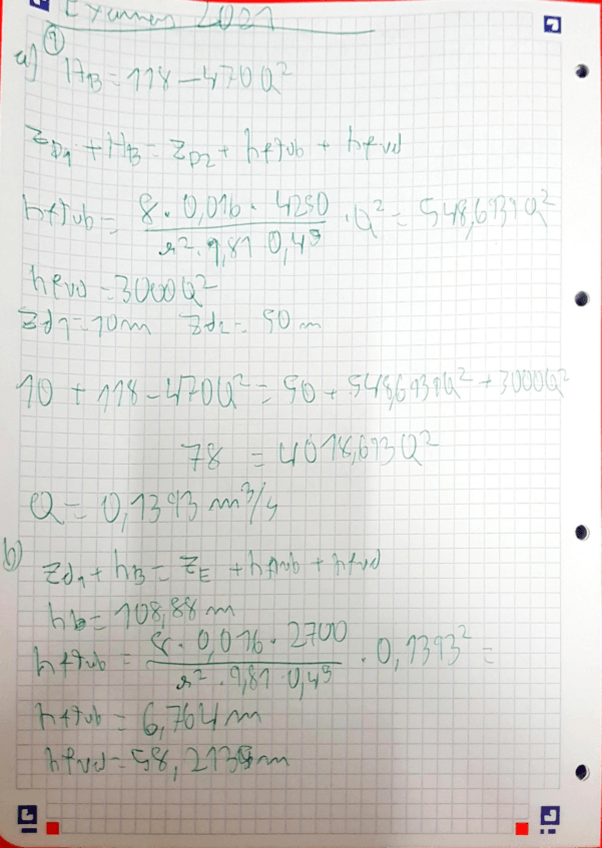 Examen 2021
①
a) HB = 118 - 470Q²
ZD1 + HB = ZD2 + hftub + hfvd
hftub = 8 · 0,016 · 4250 / π² · 9,81 · 0,4⁵ · Q² = 548,6931Q²
hfvd = 3000Q²
Zd1 = 10m Zd2 = 50m
10 + 118 - 470Q² = 50 + 548,6931Q² + 3000Q²
78 = 4018,693Q²
Q = 0,1393 m³/s
b)
Zd1 + hB = ZE + hftub + hfvd
hb = 108,88 m
hftub = 8 · 0,016 · 2700 / π² · 9,81 · 0,4⁵ · 0,1393² =
hftub = 6,764m
hfvd = 58,213m